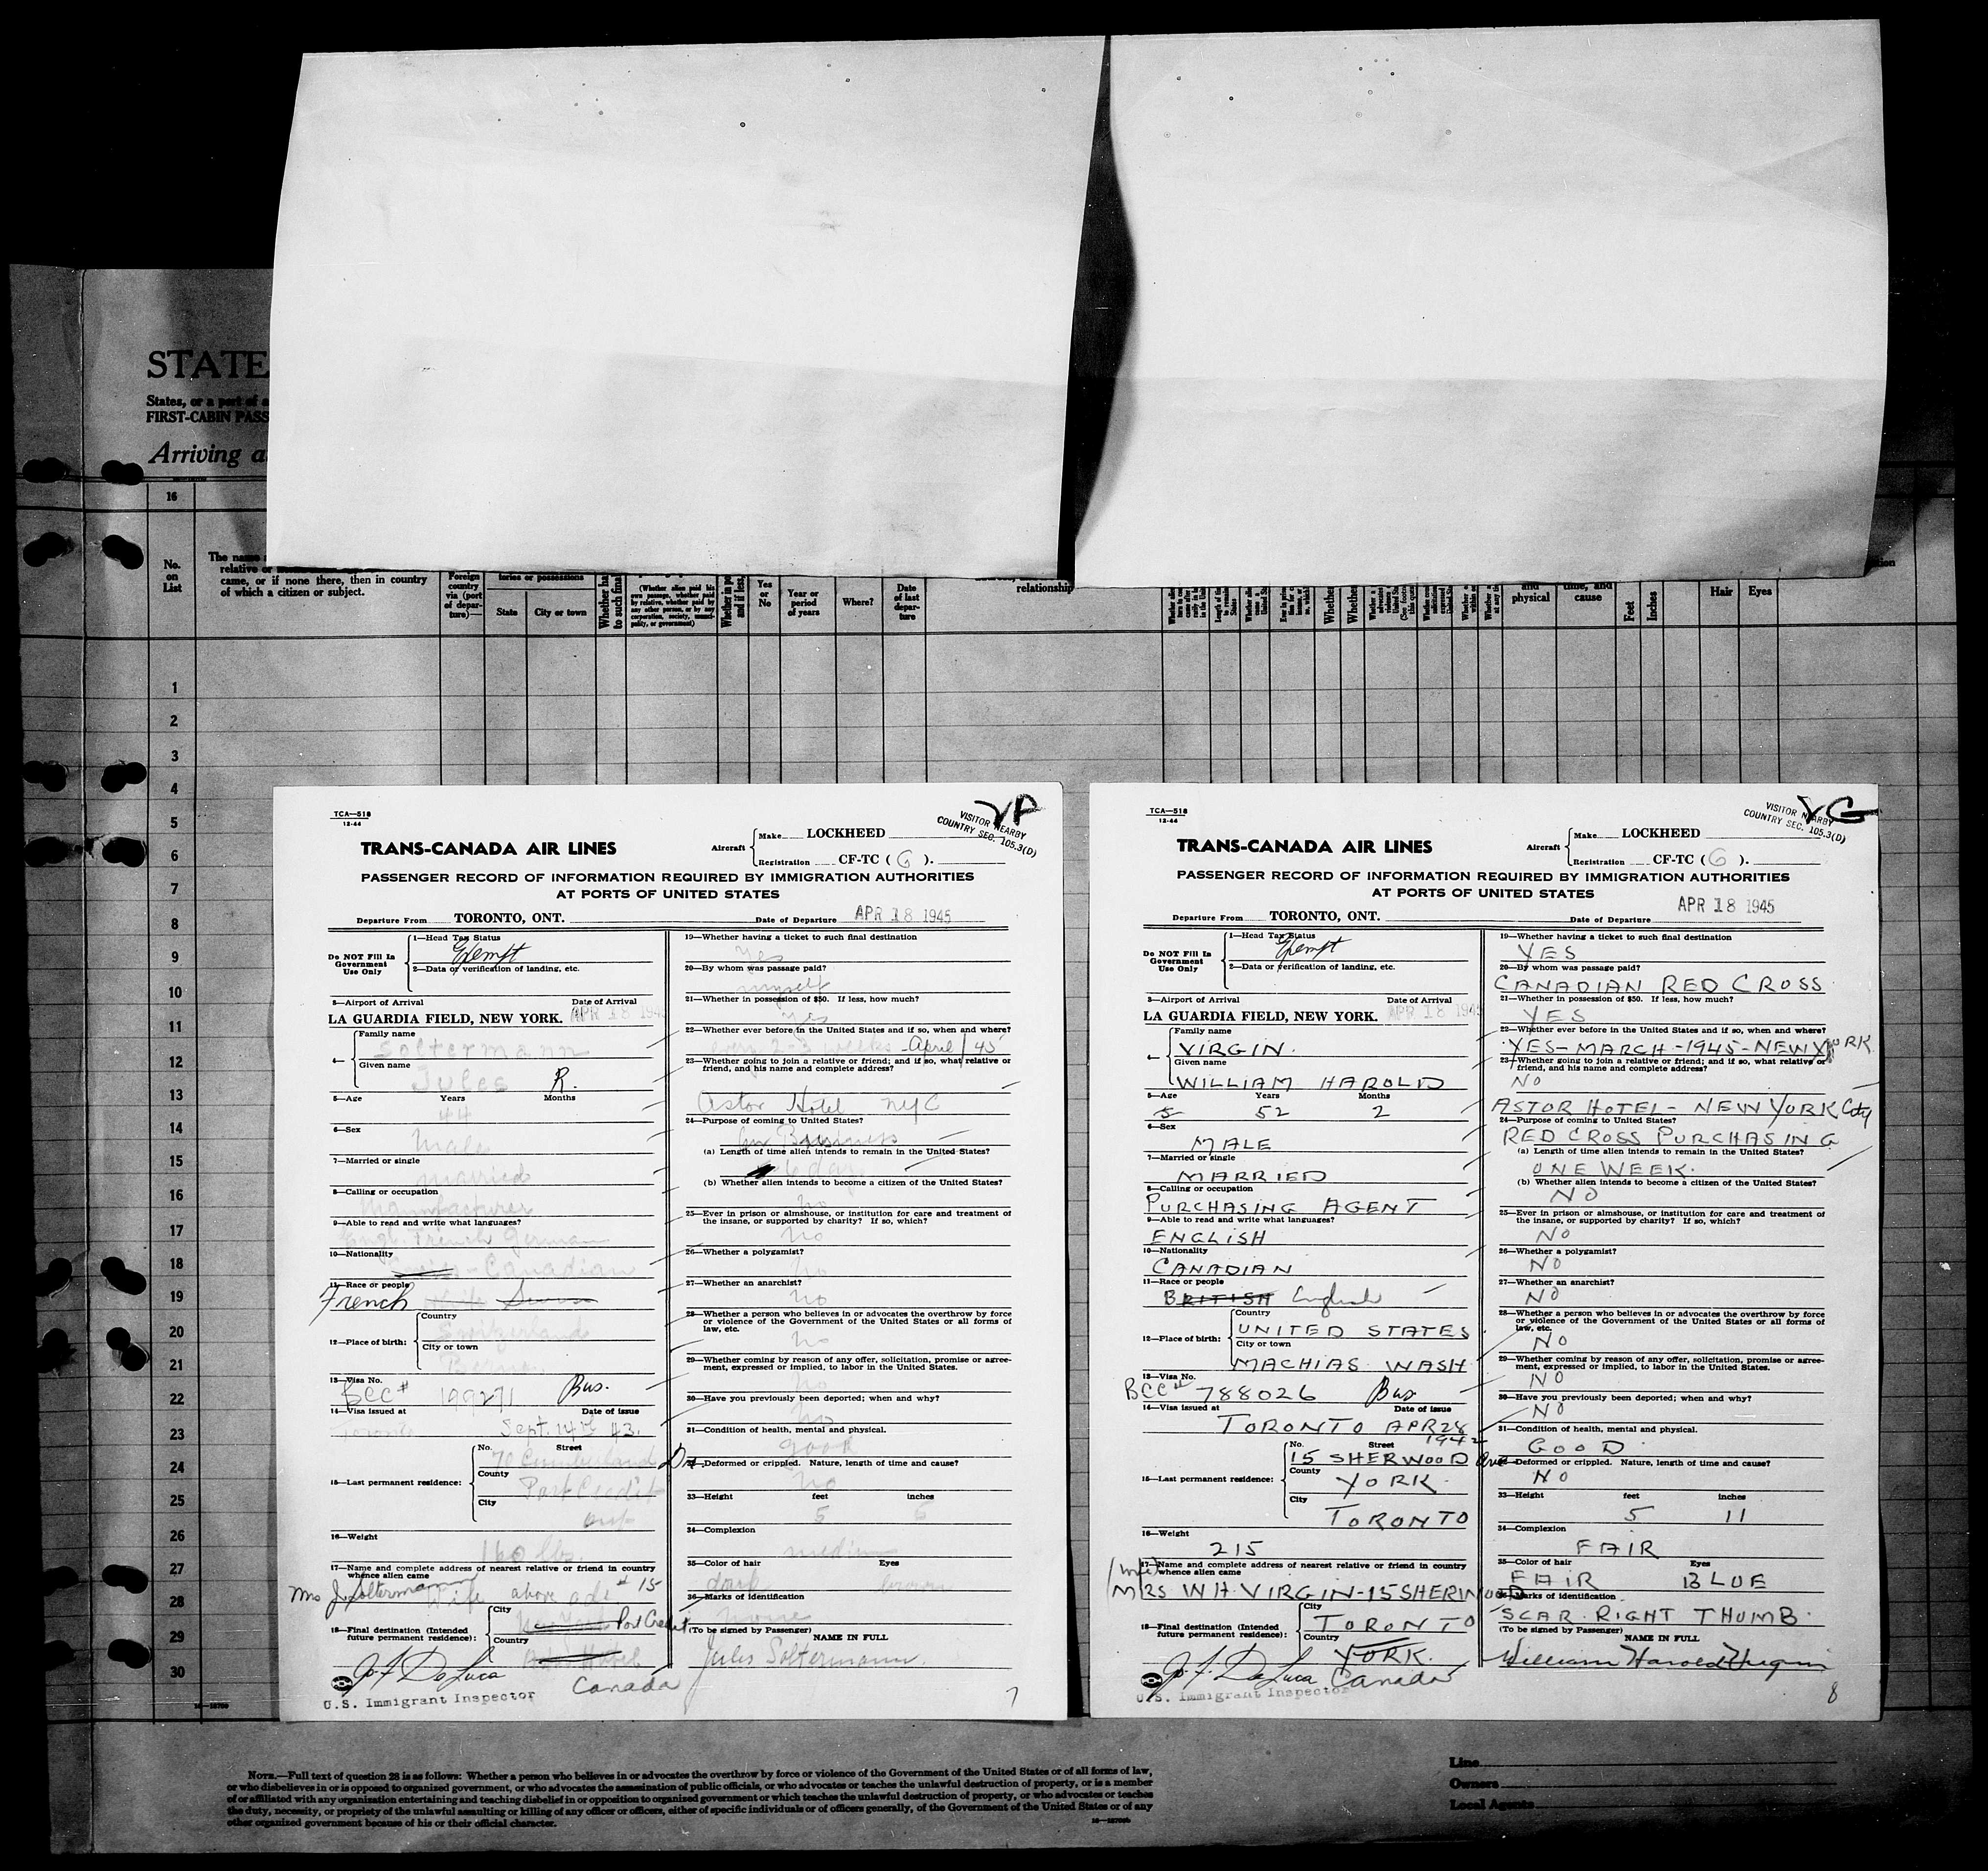 STATE
States, or a part of a
FIRST-CABIN PASS
Arriving a
16
No.
on
List
The name
relative or
came, or if none there, then in country
of which a citizen or subject.
Foreign
country
via (port
of depar-
ture)—
tories or possessions
State
City or town
(Whether alien paid his
own passage, whether paid
by relative, whether paid by
any other person, or by any
corporation, society, munici-
pality, or government)
Yes
or
No
Year or
period
of years
Where?
Date
of last
depar-
ture
relationship
and
physical
time, and
cause
Feet
Inches
Hair
Eyes
1
2
3
4
5
6
7
8
9
10
11
12
13
14
15
16
17
18
19
20
21
22
23
24
25
26
27
28
29
30
TCA—518
12-44
VP
VISITOR NEARBY
COUNTRY SEC. 105.3(D)
TRANS-CANADA AIR LINES
Aircraft
Make LOCKHEED
Registration CF-TC ( G ).
PASSENGER RECORD OF INFORMATION REQUIRED BY IMMIGRATION AUTHORITIES
AT PORTS OF UNITED STATES
Departure From TORONTO, ONT. Date of Departure APR 18 1945
Do NOT Fill In
Government
Use Only
1—Head Tax Status
Exempt
2—Data or verification of landing, etc.
3—Airport of Arrival Date of Arrival
LA GUARDIA FIELD, NEW YORK. APR 18 194
4—
Family name
Soltermann
Given name
Jules R.
5—Age Years Months
44
6—Sex
Male
7—Married or single
married
8—Calling or occupation
Manufacturer
9—Able to read and write what languages?
Engl. French German
10—Nationality
- Canadian
11—Race or people
French
12—Place of birth:
Country
Switzerland
City or town
Berne
13—Visa No.
BCC # 199271 Bus.
14—Visa issued at Date of issue
Toronto Sept. 14th 43.
15—Last permanent residence:
No. Street
70 Cumberland Dr.
County
Port Credit
City
Ont
16—Weight
160 lbs.
17—Name and complete address of nearest relative or friend in country
whence alien came
Mrs J. Soltermann Wife above ad # 15
18—Final destination (Intended
future permanent residence):
City
Port Credit
Country
Hotel
Canada
Jo. F. De Luca
U.S. Immigrant Inspector
19—Whether having a ticket to such final destination
Yes
20—By whom was passage paid?
myself
21—Whether in possession of $50. If less, how much?
Yes
22—Whether ever before in the United States and if so, when and where?
every 2-3 weeks - April / 45
23—Whether going to join a relative or friend; and if so, what relative or
friend, and his name and complete address?
Astor Hotel NYC
24—Purpose of coming to United States?
on Business
(a) Length of time alien intends to remain in the United States?
6 days
(b) Whether alien intends to become a citizen of the United States?
no
25—Ever in prison or almshouse, or institution for care and treatment of
the insane, or supported by charity? If so, which?
no
26—Whether a polygamist?
no
27—Whether an anarchist?
no
28—Whether a person who believes in or advocates the overthrow by force
or violence of the Government of the United States or all forms of
law, etc.
no
29—Whether coming by reason of any offer, solicitation, promise or agree-
ment, expressed or implied, to labor in the United States.
no
30—Have you previously been deported; when and why?
no
31—Condition of health, mental and physical.
good
32—Deformed or crippled. Nature, length of time and cause?
no
33—Height feet inches
5 6
34—Complexion
medium
35—Color of hair Eyes
dark brown
36—Marks of identification
none
(To be signed by Passenger) NAME IN FULL
Jules Soltermann.
7
TCA—518
12-44
VG
VISITOR NEARBY
COUNTRY SEC. 105.3(D)
TRANS-CANADA AIR LINES
Aircraft
Make LOCKHEED
Registration CF-TC ( G ).
PASSENGER RECORD OF INFORMATION REQUIRED BY IMMIGRATION AUTHORITIES
AT PORTS OF UNITED STATES
Departure From TORONTO, ONT. Date of Departure APR 18 1945
Do NOT Fill In
Government
Use Only
1—Head Tax Status
Exempt
2—Data or verification of landing, etc.
3—Airport of Arrival Date of Arrival
LA GUARDIA FIELD, NEW YORK. APR 18 1945
4—
Family name
VIRGIN.
Given name
WILLIAM HAROLD
5—Age Years Months
5 52 2
6—Sex
MALE
7—Married or single
MARRIED
8—Calling or occupation
PURCHASING AGENT
9—Able to read and write what languages?
ENGLISH
10—Nationality
CANADIAN
11—Race or people
BRITISH English
12—Place of birth:
Country
UNITED STATES
City or town
MACHIAS WASH
13—Visa No.
BCC # 788026 Bus
14—Visa issued at Date of issue
TORONTO APR 28
1942
15—Last permanent residence:
No. Street
15 SHERWOOD Ave
County
YORK
City
TORONTO
16—Weight
215
17—Name and complete address of nearest relative or friend in country
whence alien came
(wife)
MRS W H VIRGIN - 15 SHERWOOD
18—Final destination (Intended
future permanent residence):
City
TORONTO
Country
YORK.
Canada
Jo. F. De Luca
U.S. Immigrant Inspector
19—Whether having a ticket to such final destination
YES
20—By whom was passage paid?
CANADIAN RED CROSS
21—Whether in possession of $50. If less, how much?
YES
22—Whether ever before in the United States and if so, when and where?
YES - MARCH - 1945 - NEW YORK
23—Whether going to join a relative or friend; and if so, what relative or
friend, and his name and complete address?
NO
ASTOR HOTEL - NEW YORK City
24—Purpose of coming to United States?
RED CROSS PURCHASING
(a) Length of time alien intends to remain in the United States?
ONE WEEK.
(b) Whether alien intends to become a citizen of the United States?
NO
25—Ever in prison or almshouse, or institution for care and treatment of
the insane, or supported by charity? If so, which?
NO
26—Whether a polygamist?
NO
27—Whether an anarchist?
NO
28—Whether a person who believes in or advocates the overthrow by force
or violence of the Government of the United States or all forms of
law, etc.
NO
29—Whether coming by reason of any offer, solicitation, promise or agree-
ment, expressed or implied, to labor in the United States.
NO
30—Have you previously been deported; when and why?
NO
31—Condition of health, mental and physical.
GOOD
32—Deformed or crippled. Nature, length of time and cause?
NO
33—Height feet inches
5 11
34—Complexion
FAIR
35—Color of hair Eyes
FAIR BLUE
36—Marks of identification
SCAR RIGHT THUMB.
(To be signed by Passenger) NAME IN FULL
William Harold Virgin
8
NOTE.—Full text of question 28 is as follows: Whether a person who believes in or advocates the overthrow by force or violence of the Government of the United States or of all forms of law,
or who disbelieves in or is opposed to organized government, or who advocates the assassination of public officials, or who advocates or teaches the unlawful destruction of property, or is a member
of or affiliated with any organization entertaining and teaching disbelief in or opposition to organized government or which teaches the unlawful destruction of property, or who advocates or teaches
the duty, necessity, or propriety of the unlawful assaulting or killing of any officer or officers, either of specific individuals or of officers generally, of the Government of the United States or of any
other organized government because of his or their official character.
Line
Owners
Local Agents